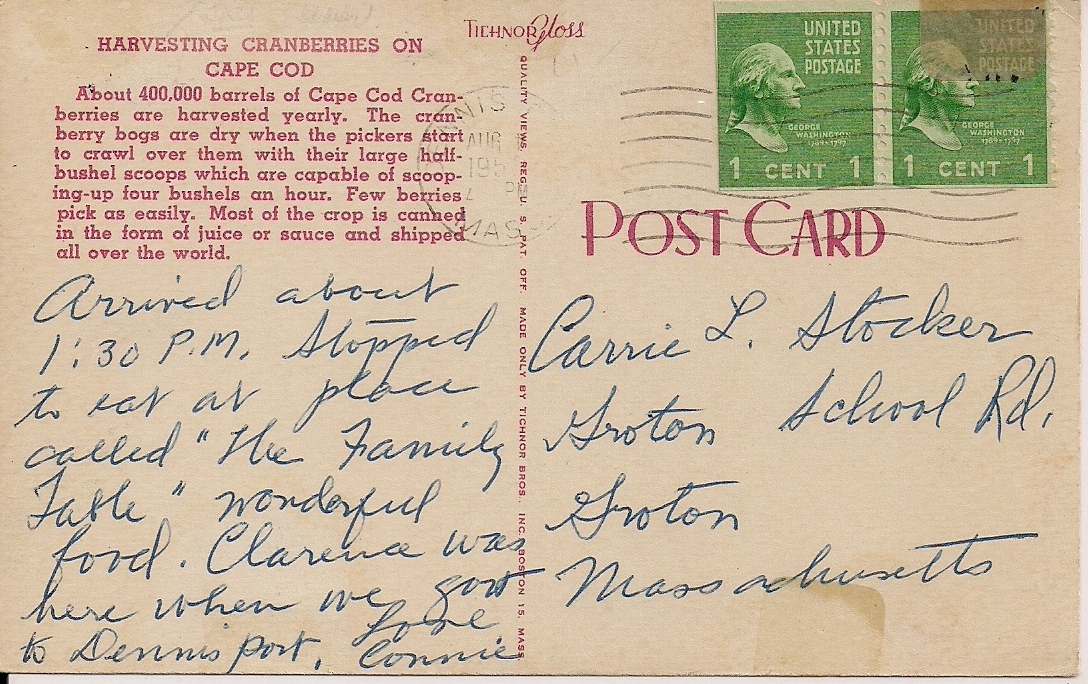 HARVESTING CRANBERRIES ON
CAPE COD
About 400,000 barrels of Cape Cod Cran-
berries are harvested yearly. The cran-
berry bogs are dry when the pickers start
to crawl over them with their large half-
bushel scoops which are capable of scoop-
ing-up four bushels an hour. Few berries
pick as easily. Most of the crop is canned
in the form of juice or sauce and shipped
all over the world.
Arrived about
1:30 P.M. Stopped
to eat at place
called "The Family
Table" wonderful
food. Clarence was
here when we got
to Dennisport.
Love
Connie
TICHNOR Gloss
QUALITY VIEWS REG. U. S. PAT. OFF. MADE ONLY BY TICHNOR BROS., INC. BOSTON 15, MASS.
NIS
AUG
195
PM
MASS
UNITED
STATES
POSTAGE
GEORGE
WASHINGTON
1789-1797
1 CENT 1
UNITED
STATES
POSTAGE
GEORGE
WASHINGTON
1789-1797
1 CENT 1
POST CARD
Carrie L. Stocker
Groton School Rd.
Groton
Massachusetts